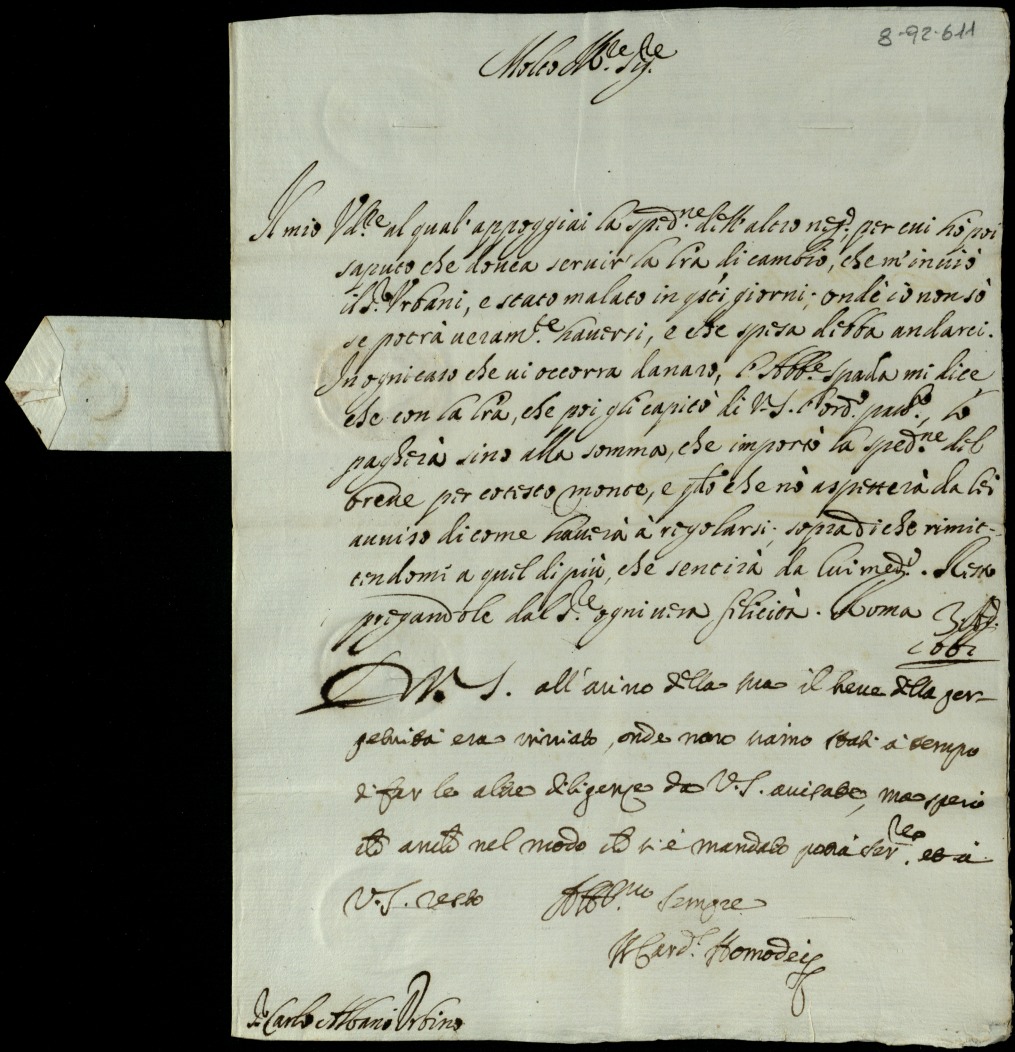 8-92-611
Molto Ill.re Sig.re
Il mio Ud.re al qual' appoggiai la sped.ne dell' altro neg.o, per cui hò poi
saputo che dovea servir la lrã di cambio, che m' inviò
il S.r Urbani, e stato malato in q.sti giorni; ond' è io non sò
se potrà veram.te haversi, e che spesa debba andarci.
In ogni caso che vi occorra danaro, l' Abb.e Spada mi dice
che con la lrã, che poi gli capitò di V.S. l' ord.e, lo
pagherà sino alla somma, che importò la sped.ne del
breve per cotesto monte, e q.do che nò aspetterà da lei
avviso di come haverà à regolarsi; sopra di che rimit-
tendomi a quel di più, che sentirà da lui med.o. Resto
pregandole dal S.re ogni vera felicità. Roma 3
V.S. all' aviso della sua il breve della per-
petuità era inviato, onde non siamo stati a tempo
di far le altre diligenze da V.S. avisate, ma spero
che anche nel modo che si è mandato potrà ser.re, et à
V.S. resto Aff.mo sempre
Il Card.l Homodei
S.r Carlo Albani Urbino